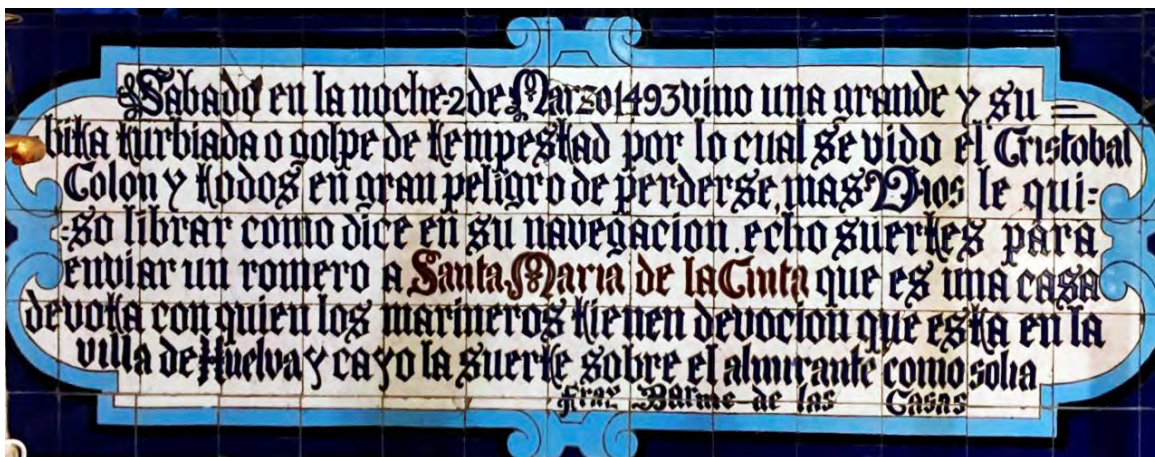 Sabado en la noche-2 de Marzo 1493 vino una grande y su=
bita turbiada o golpe de tempestad por lo cual se vido el Cristobal
Colon y todos en gran peligro de perderse, mas Dios le qui-
-so librar como dice en su navegacion. echo suertes para
enviar un romero a Santa Maria de la Cinta que es una casa
devota con quien los marineros tienen devocion que esta en la
villa de Huelva y cayo la suerte sobre el almirante como solia
Fray Barme de las Casas